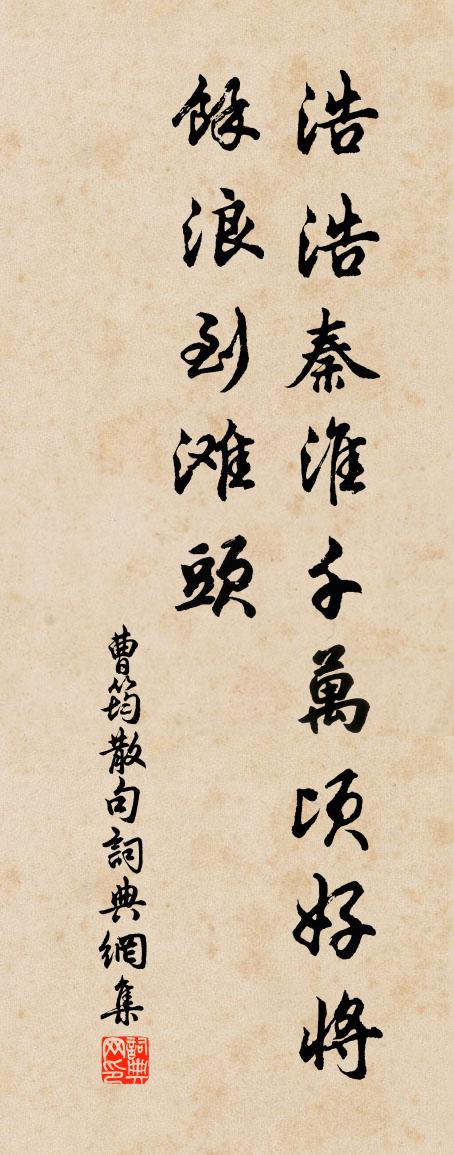 浩浩秦淮千萬頃好將
餘浪到滩頭
曹筠散句詞典網集
詞典网印